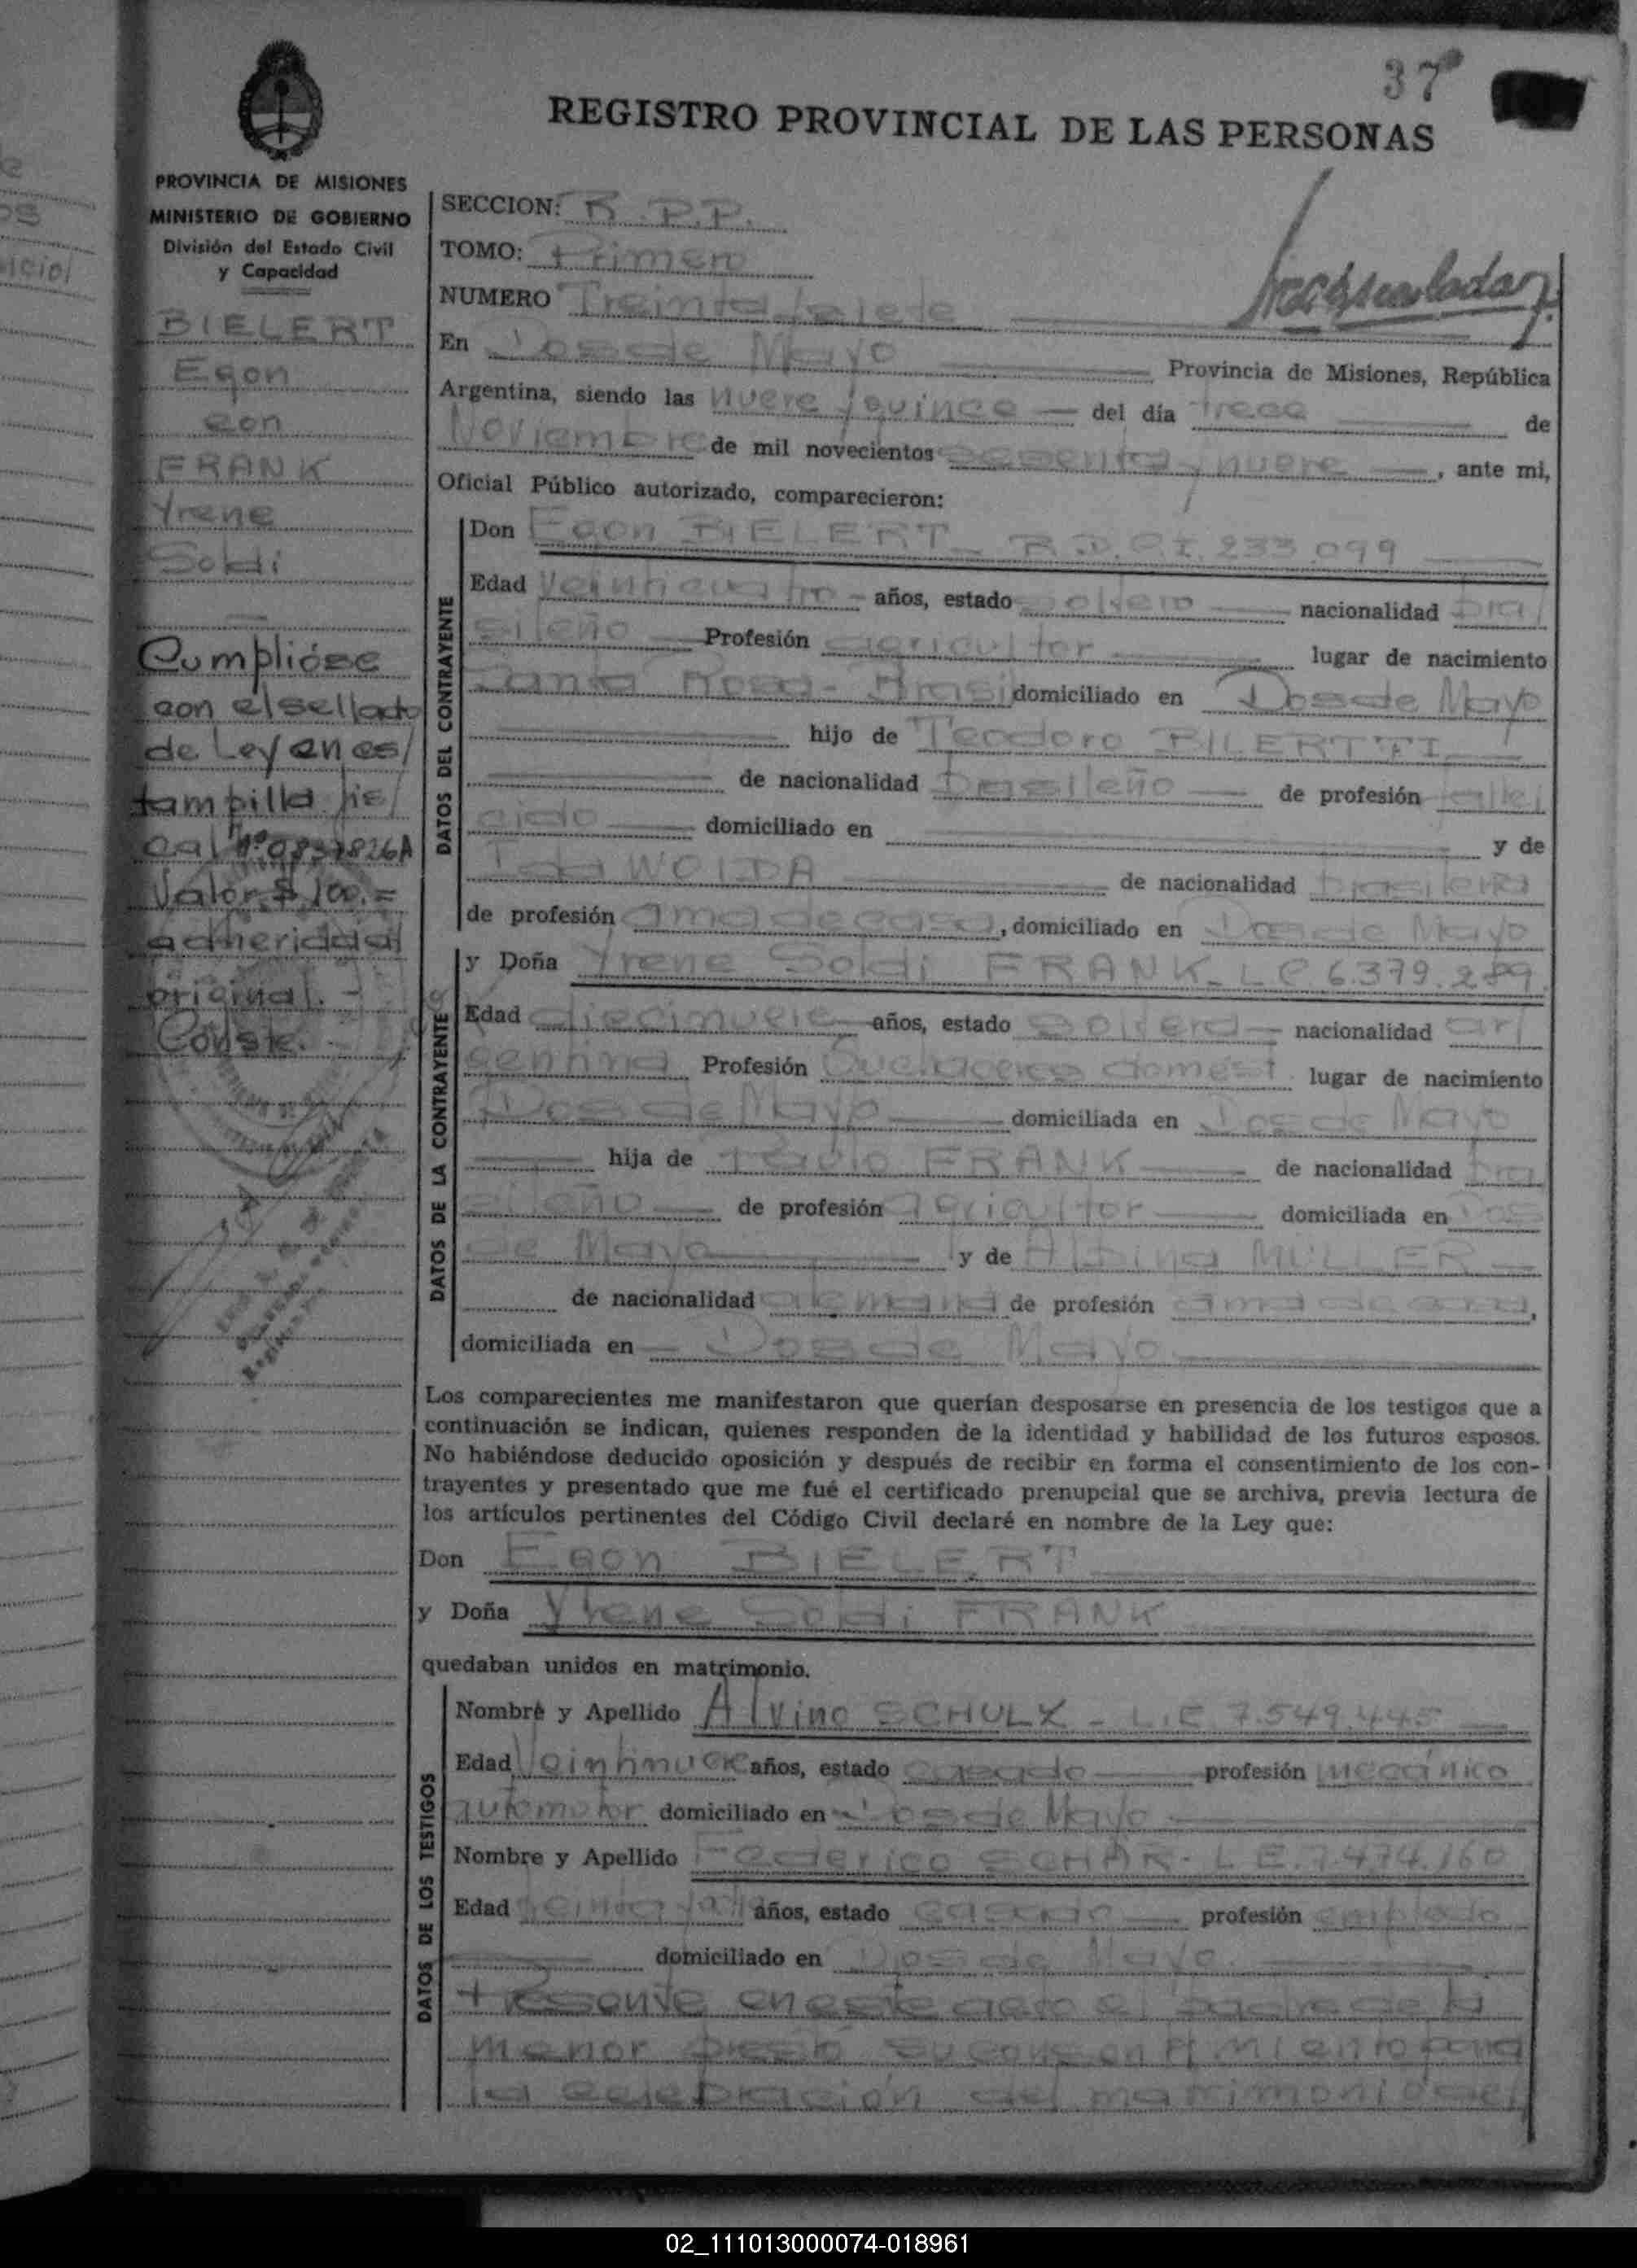 37
REGISTRO PROVINCIAL DE LAS PERSONAS
PROVINCIA DE MISIONES
MINISTERIO DE GOBIERNO
División del Estado Civil
y Capacidad
BIELERT
Egon
con
FRANK
Yrene
Soldi
Cumplióse
con el sellado
de Ley en es/
tampilla fis/
cal Nº 0837826A
Valor $ 100.=
adherida al
original.-
Conste.-
SECCION: R.P.P.
TOMO: Primero
NUMERO Treinta y siete
En Dos de Mayo Provincia de Misiones, República
Argentina, siendo las nueve y quince del día trece de
Noviembre de mil novecientos sesenta y nueve, ante mi,
Oficial Público autorizado, comparecieron:
DATOS DEL CONTRAYENTE
Don Egon BIELERT - R.D.P.I. 233.099
Edad Veinticuatro años, estado soltero nacionalidad bra/
sileño Profesión agricultor lugar de nacimiento
Santa Rosa - Brasil domiciliado en Dos de Mayo
hijo de Teodoro BILERTTI
de nacionalidad brasileño de profesión falle/
cido domiciliado en y de
Ida WOIDA de nacionalidad brasileña
de profesión ama de casa, domiciliado en Dos de Mayo
DATOS DE LA CONTRAYENTE
y Doña Yrene Soldi FRANK - L.C. 6.379.289
Edad diecinueve años, estado soltera nacionalidad ar/
gentina Profesión Quehaceres domést. lugar de nacimiento
Dos de Mayo domiciliada en Dos de Mayo
hija de FRANK de nacionalidad bra
sileño de profesión agricultor domiciliada en Dos
de Mayo y de Albina MULLER
de nacionalidad alemana de profesión ama de casa,
domiciliada en Dos de Mayo
Los comparecientes me manifestaron que querían desposarse en presencia de los testigos que a
continuación se indican, quienes responden de la identidad y habilidad de los futuros esposos.
No habiéndose deducido oposición y después de recibir en forma el consentimiento de los con-
trayentes y presentado que me fué el certificado prenupcial que se archiva, previa lectura de
los artículos pertinentes del Código Civil declaré en nombre de la Ley que:
Don Egon BIELERT
y Doña Yrene Soldi FRANK
quedaban unidos en matrimonio.
DATOS DE LOS TESTIGOS
Nombre y Apellido Alvino SCHULX - L.E. 7.549.445
Edad Veintinueve años, estado casado profesión mecánico
automotor domiciliado en Dos de Mayo
Nombre y Apellido Federico SCHAR - L.E. 7.474.160
Edad treinta años, estado casado profesión empleado
domiciliado en Dos de Mayo.
Presente en este acto el padre de la
menor prestó su consentimiento para
la celebración del matrimonio de/
02_111013000074-018961